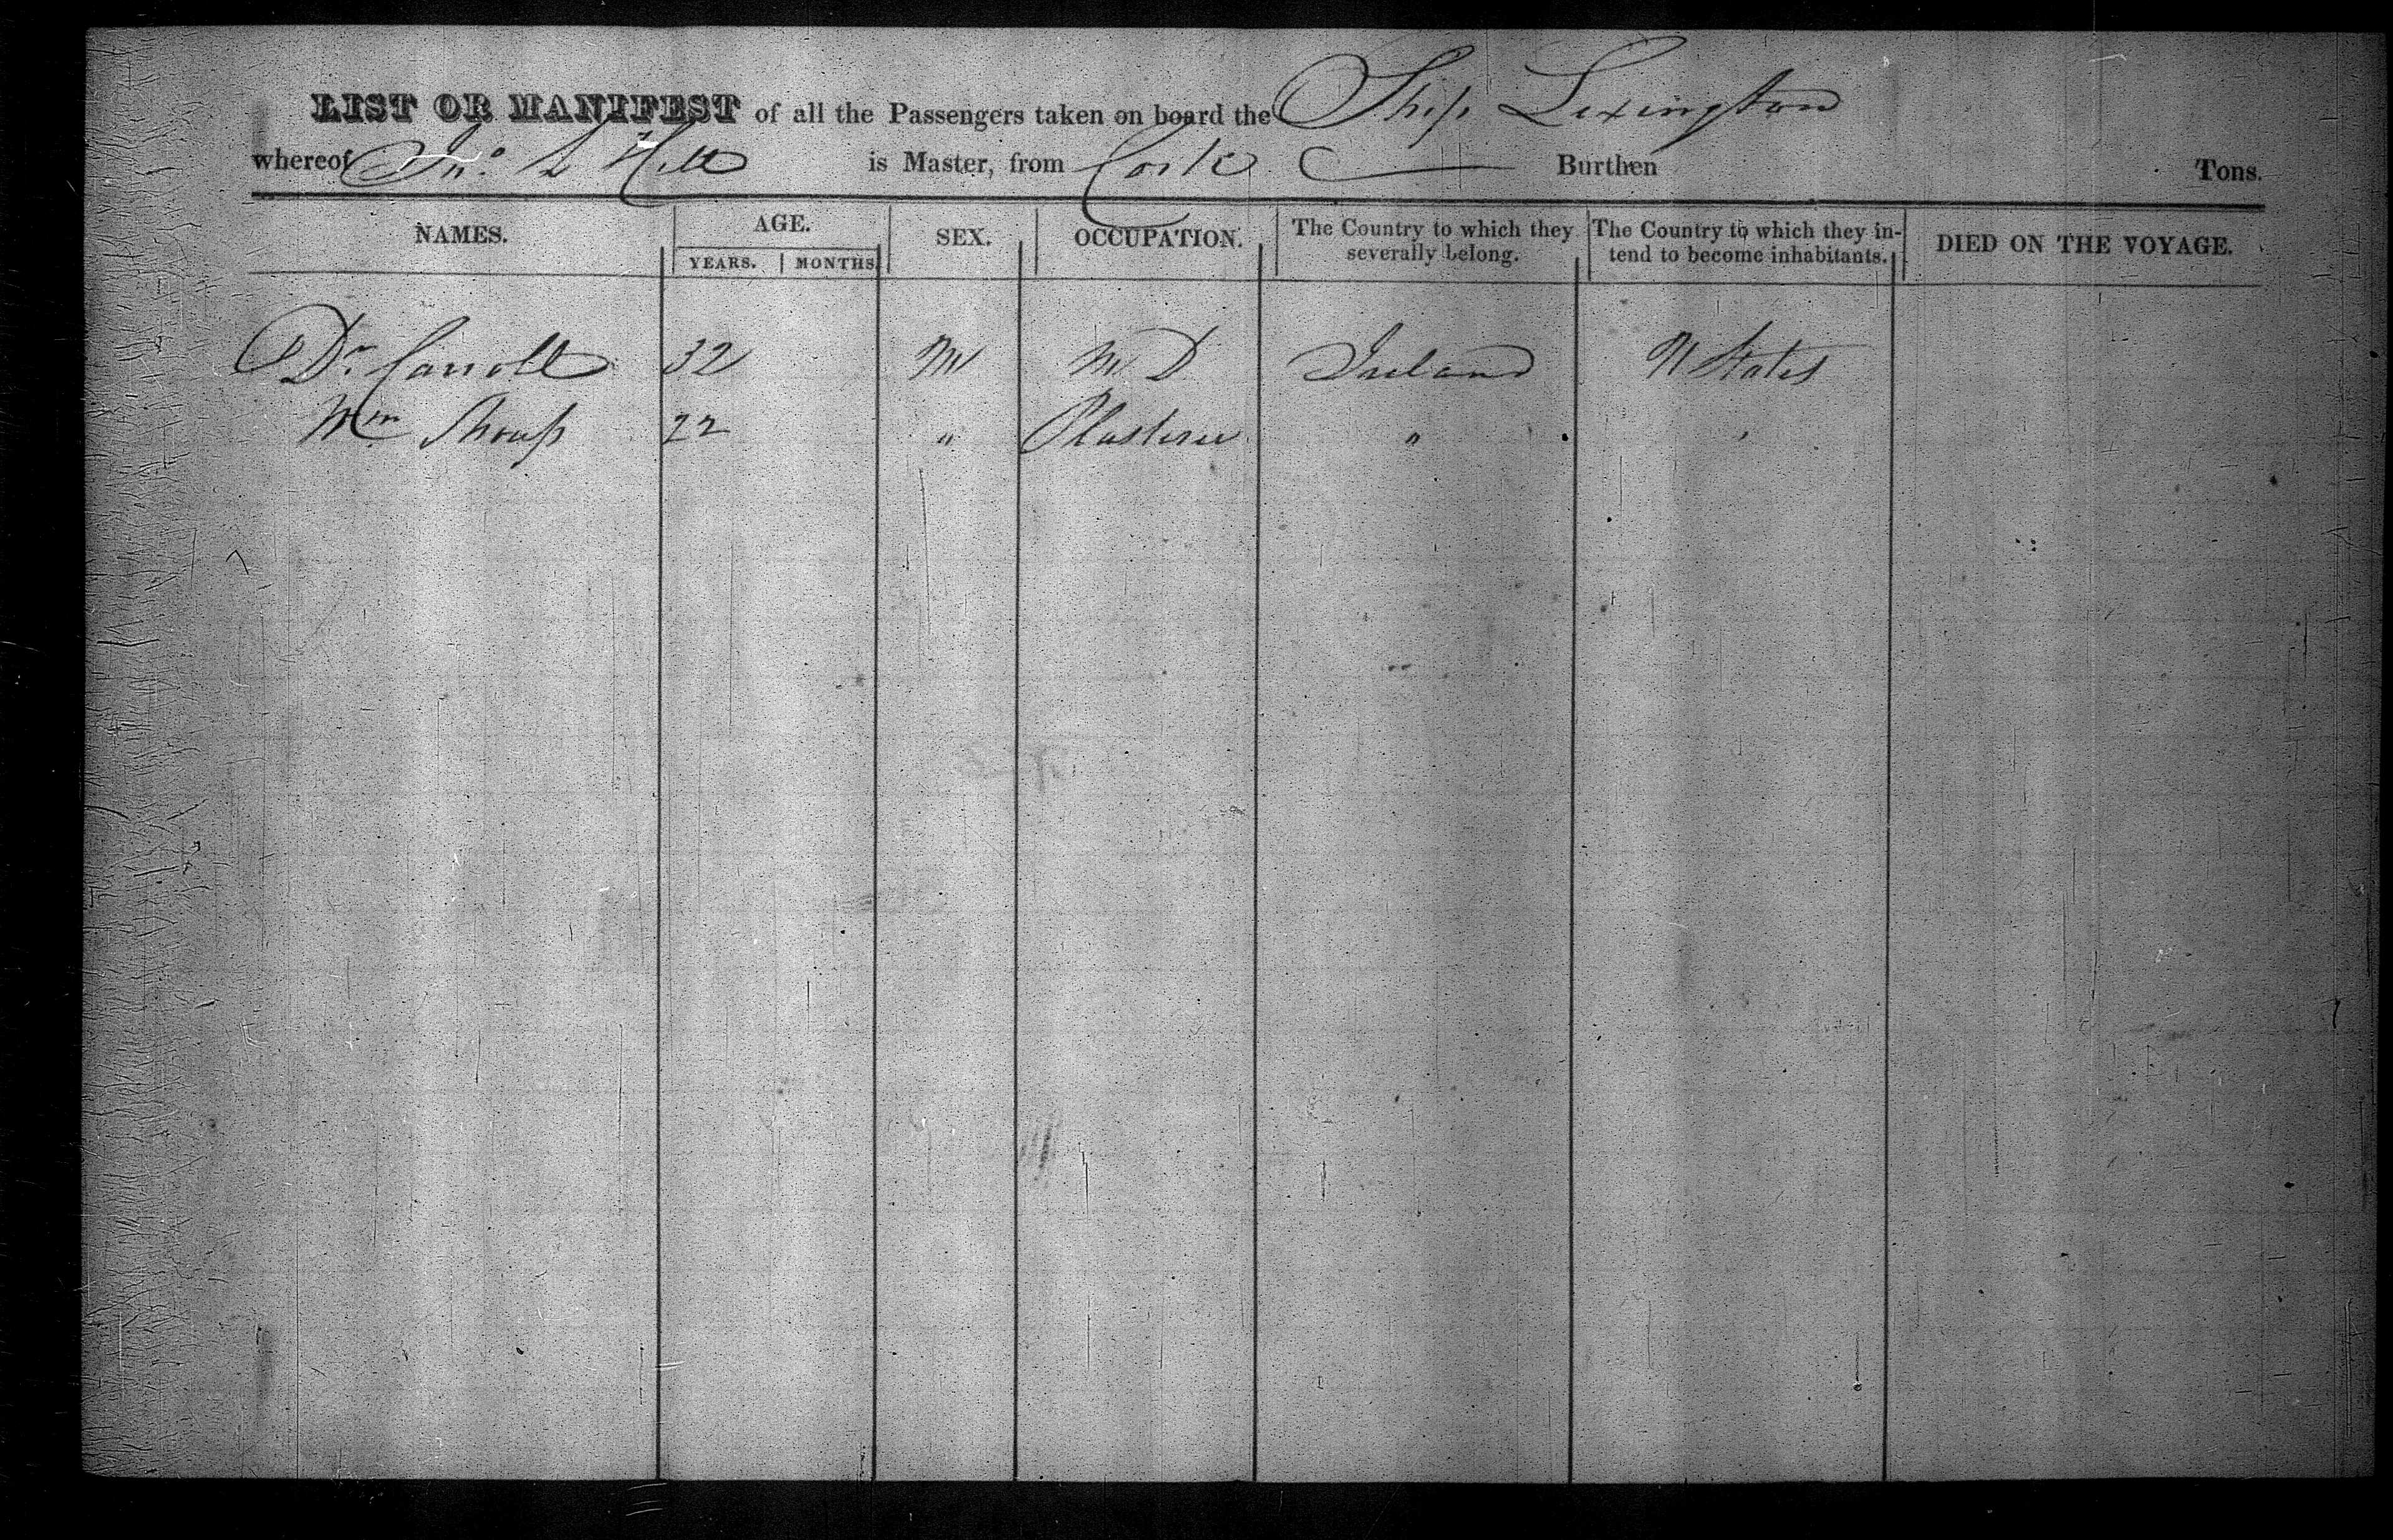 LIST OR MANIFEST of all the Passengers taken on board the Ship Lexington
whereof Jno. is Master, from Cork Burthen Tons.
NAMES. AGE. SEX. OCCUPATION. The Country to which they severally belong. The Country to which they intend to become inhabitants. DIED ON THE VOYAGE.
YEARS. MONTHS
Dr Carroll 32 M M D Ireland U States
Wm 22 " Plasterer " "